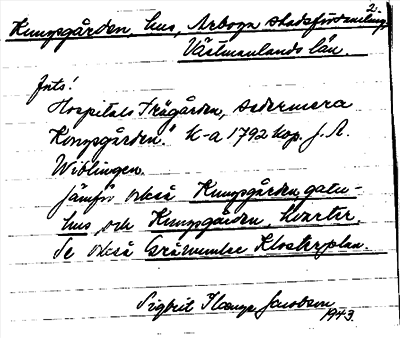 2.
Kungsgården, hus, Arboga stadsförsamling,
Västmanlands län.
Jnts!
Hospitals Trägården, sedermera
Kongsgården." K-a 1792 kop. f. A.
Wiblingen.
Jämför också Kungsgården, gatu-
hus och Kungsgården, kvarter.
Se också Gråmunke Klosterplan.
Sigbrit Jacobson
1943.